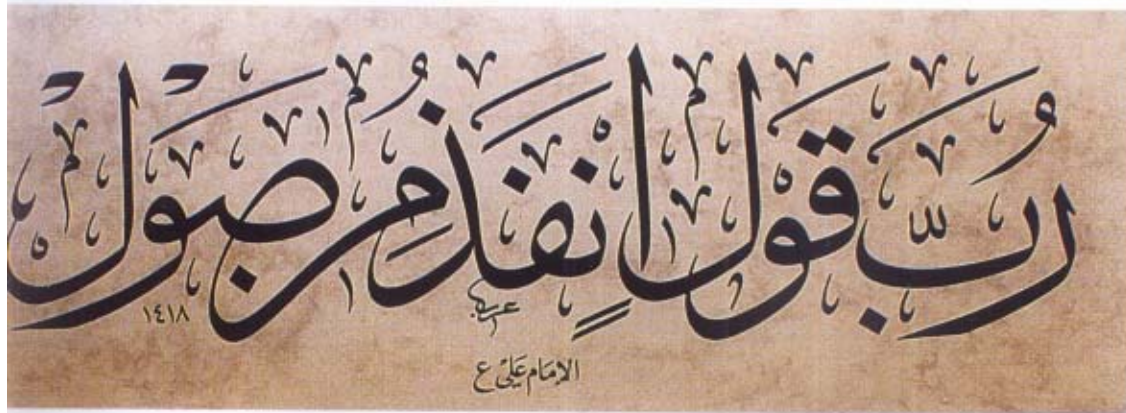 رُبَّ قَوْلٍ اَنْفَذُ مِن صَوْلٍ
١٤١٨
الإمَام عَلي ع